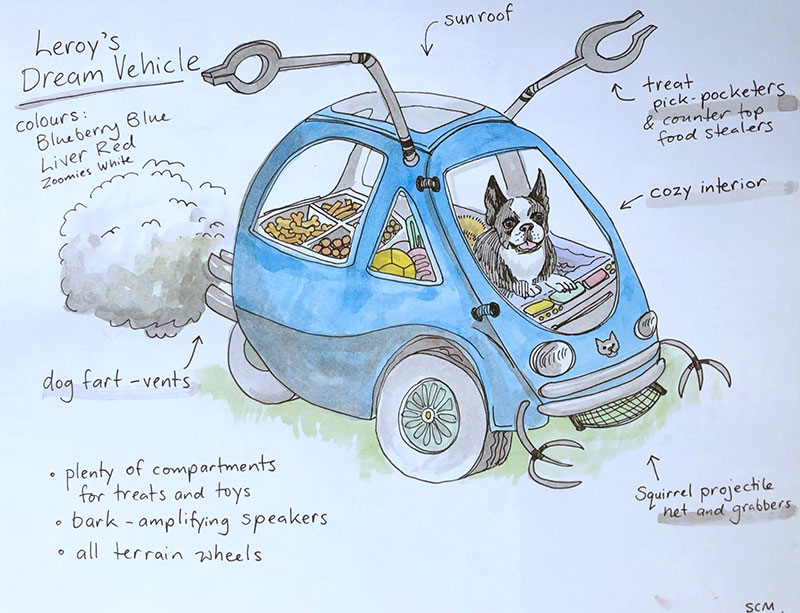 Leroy's
Dream Vehicle
colours:
Blueberry Blue
Liver Red
Zoomies White
sunroof
treat
pick-pocketers
& counter top
food stealers
cozy interior
dog fart-vents
• plenty of compartments
for treats and toys
• bark-amplifying speakers
• all terrain wheels
Squirrel projectile
net and grabbers
SCM.